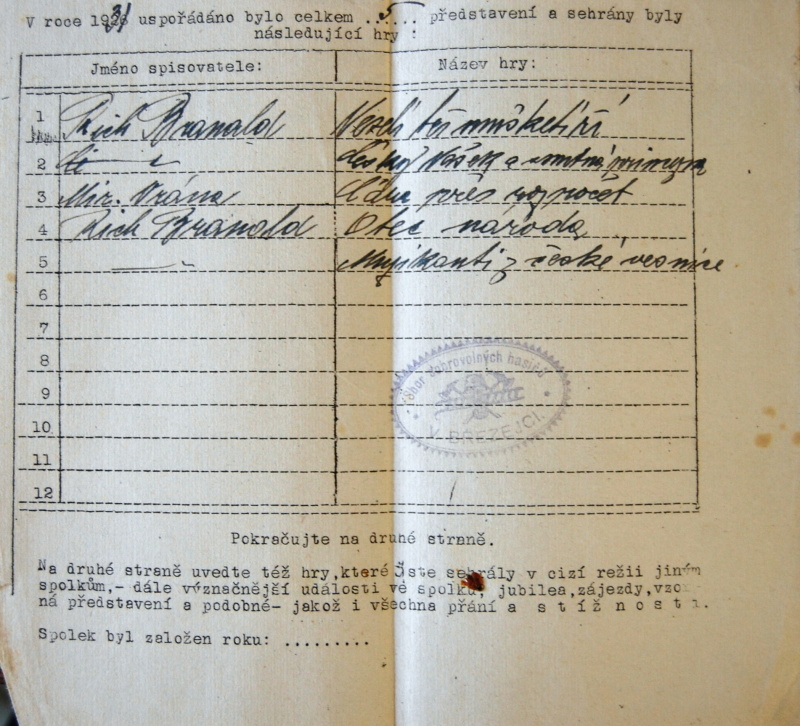 V roce 1931 uspořádáno bylo celkem ..5... představení a sehrány byly
následující hry :
Jméno spisovatele: Název hry:
1 Rich Branald Veselí tři mušketíři
2 Český Vašek a smutná princezna
3 Mir. Vrána Čára přes rozpočet
4 Rich Branald Otec národa
5 —„— Muzikanti z české vesnice
6
7
8
9
10
11
12
Sbor dobrovolných hasičů
V BŘEZEJCI.
Pokračujte na druhé straně.
Na druhé straně uveďte též hry,které jste sehrály v cizí režii jiným
spolkům,- dále význačnější události ve spolku, jubilea,zájezdy,vzo
ná představení a podobné- jakož i všechna přání a s t í ž n o s t i.
Spolek byl založen roku: .........